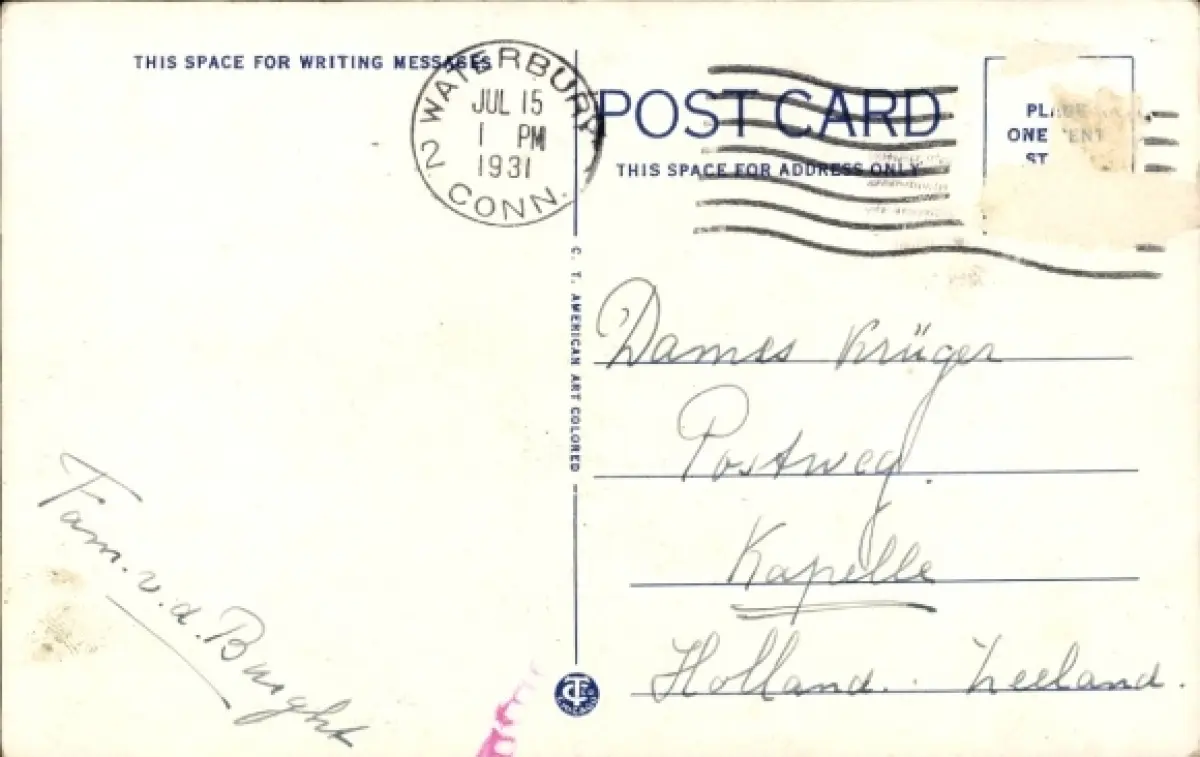 THIS SPACE FOR WRITING MESSAGES
WATERBURY
JUL 15
1 PM
1931
2 CONN.
POST CARD
THIS SPACE FOR ADDRESS ONLY
PLACE
ONE CENT
ST
C. T. AMERICAN ART COLORED
Dames Krüger
Postweg.
Kapelle
Holland. Zeeland.
Fam. v. d. Burght
CT
CHICAGO